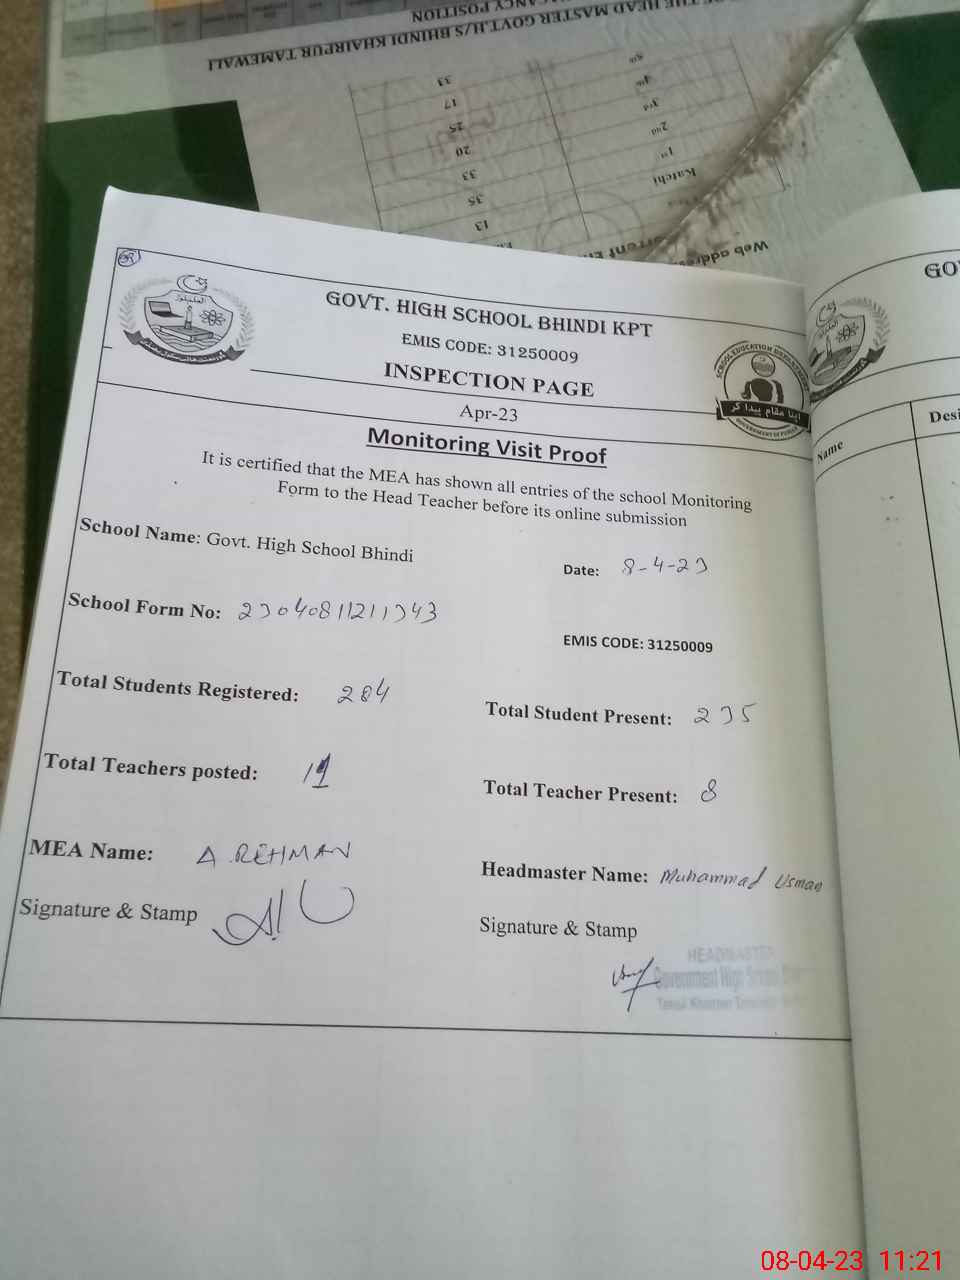 HEAD MASTER GOVT.H/S BHINDI KHAIRPUR TAMEWALI
POSITION
5th
33
4th
17
3rd
25
2nd
20
1st
33
Katchi
35
13
Web address
GOVT. HIGH SCHOOL BHINDI KPT
EMIS CODE: 31250009
INSPECTION PAGE
Apr-23
SCHOOL EDUCATION DEPARTMENT
اپنا مقام پیدا کر
Monitoring Visit Proof
It is certified that the MEA has shown all entries of the school Monitoring
Form to the Head Teacher before its online submission
School Name: Govt. High School Bhindi
Date: 8-4-23
School Form No: 23040811211343
EMIS CODE: 31250009
Total Students Registered: 284
Total Student Present: 235
Total Teachers posted: 11
Total Teacher Present: 8
MEA Name: A.REHMAN
Headmaster Name: Muhammad Usman
Signature & Stamp
Signature & Stamp
HEADMASTER
Government High School
GO
Name
Desi
08-04-23 11:21